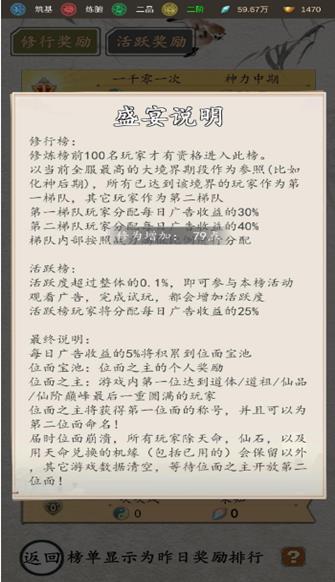 筑基 炼腑 二品 二阶 59.67万 1470
修行奖励 活跃奖励
一千零一次 神力中期
盛宴说明
修行榜:
修炼榜前100名玩家才有资格进入此榜。
以当前全服最高的大境界期段作为参照(比如
化神后期)，所有已达到该境界的玩家作为第
一梯队，其它玩家作为第二梯队
第一梯队玩家分配每日广告收益的30%
第二梯队玩家分配每日广告收益的40%
梯队内部按照 分配
修为增加: 79点
活跃榜:
活跃度超过整体的0.1%，即可参与本榜活动
观看广告，完成试玩，都会增加活跃度
活跃榜玩家将分配每日广告收益的25%
最终说明:
每日广告收益的5%将积累到位面宝池
位面宝池: 位面之主的个人奖励
位面之主: 游戏内第一位达到道体/道祖/仙品
/仙阶巅峰最后一重圆满的玩家
位面之主将获得第一位面的称号，并且可以为
第二位面命名!
届时位面崩溃，所有玩家除天命，仙石，以及
用天命兑换的机缘（包括已用的）会保留以外
，其它游戏数据清空，等待位面之主开放第二
位面!
0 0
返回 榜单显示为昨日奖励排行 ?